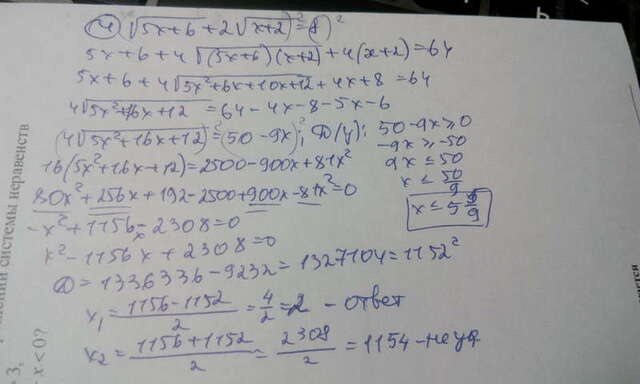 4) (√5x+6 + 2√x+2)² = (8)²
5x+6+4√(5x+6)(x+2)+4(x+2)=64
5x+6+4√5x²+6x+10x+12+4x+8=64
4√5x²+16x+12=64-4x-8-5x-6
(4√5x²+16x+12)²=(50-9x)²; D(y); 50-9x≥0
-9x≥-50
16(5x²+16x+12)=2500-900x+81x²
9x≤50
x≤50/9
80x²+256x+192-2500+900x-81x²=0
x≤5 5/9
-x²+1156x-2308=0
x²-1156x+2308=0
D=1336336-9232=1327104=1152²
x₁=(1156-1152)/2=4/2=2 - ответ
x₂=(1156+1152)/2=2308/2=1154-не уд
системы неравенств
3,
x<0?